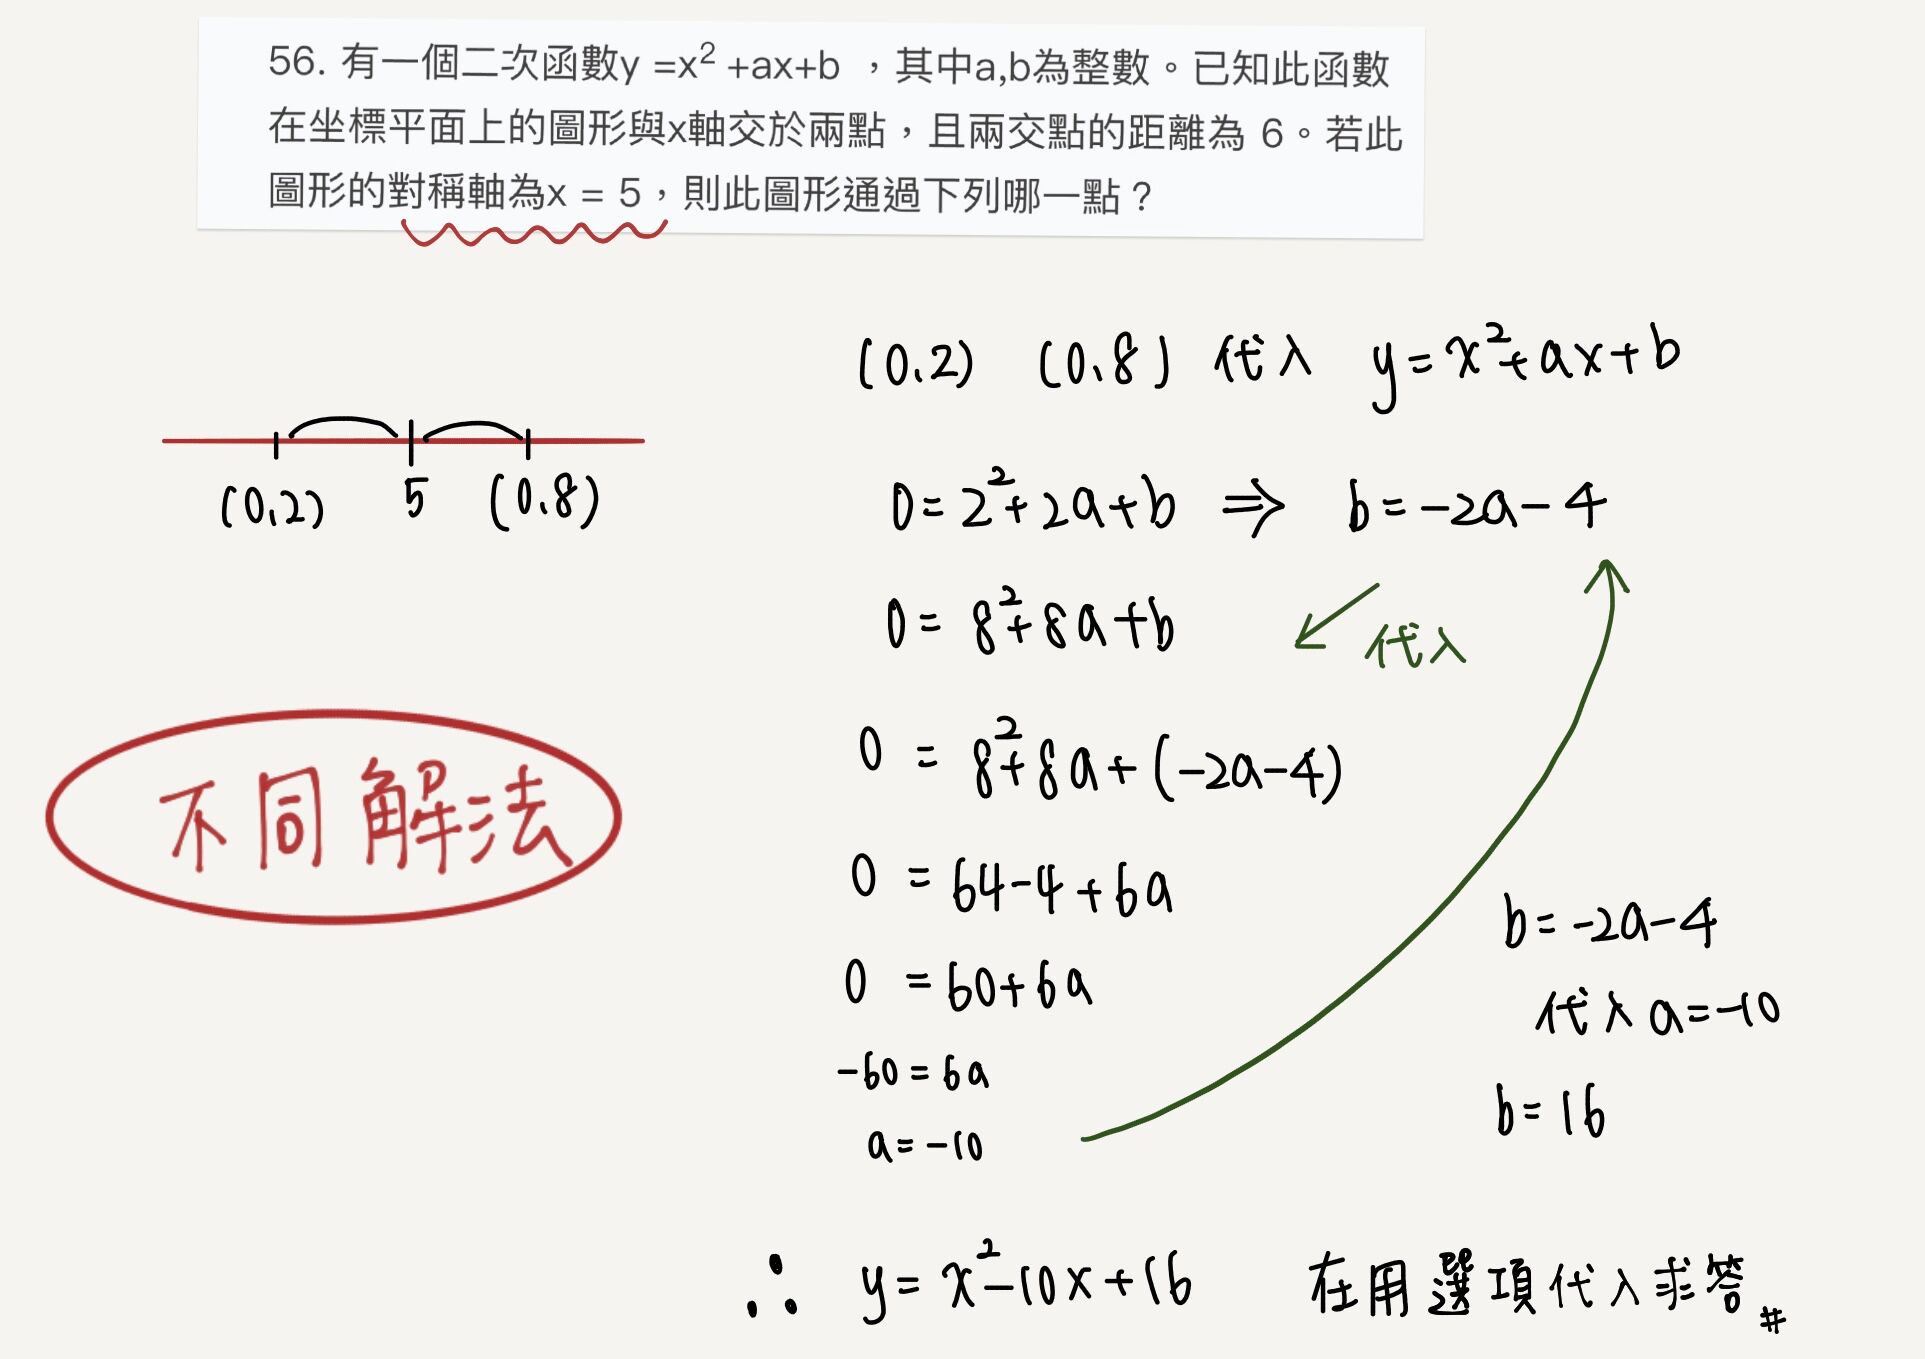 56. 有一個二次函數y =x² +ax+b ，其中a,b為整數。已知此函數
在坐標平面上的圖形與x軸交於兩點，且兩交點的距離為 6。若此
圖形的對稱軸為x = 5，則此圖形通過下列哪一點？
(0,2) 5 (0,8)
不同解法
(0,2) (0,8) 代入 y=x²+ax+b
0=2²+2a+b ⇒ b=-2a-4
0= 8²+8a+b
代入
0 = 8²+8a+(-2a-4)
0 = 64-4+6a
0 = 60+6a
-60=6a
a=-10
b=-2a-4
代入 a=-10
b=16
∴ y=x²-10x+16 在用選項代入求答#